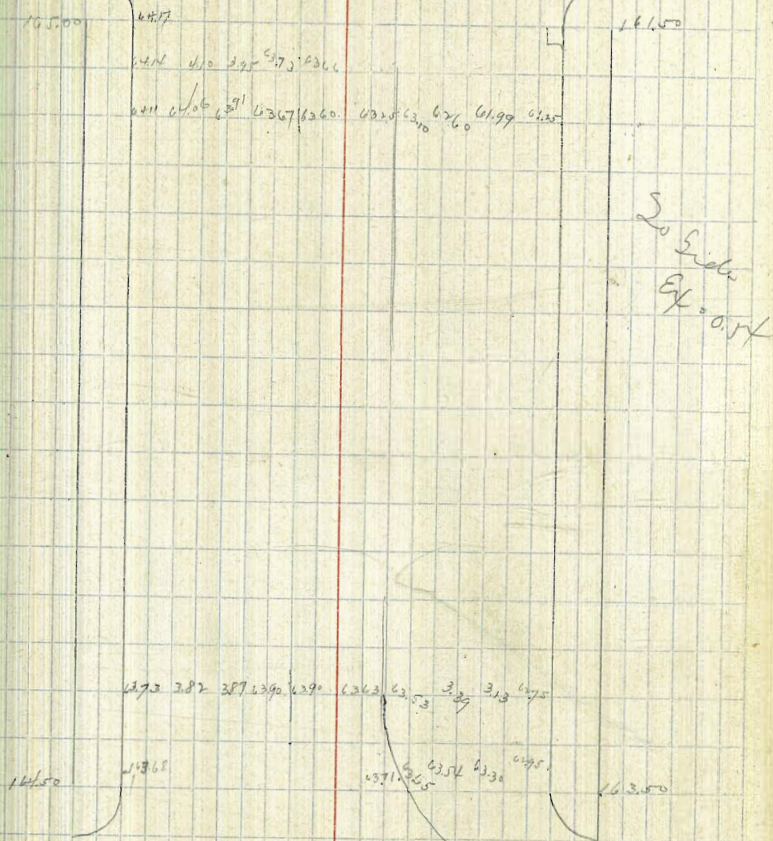 165.00 64.17 161.50
64.14 4.10 3.95 63.73 6366
64.11 64.06 63.91 6367 6360. 6325 63.10 6260 61.99 61.35
So Side
Ex. 0.54
63.73 3.82 387 6390 6390 6363 63.53 3.39 3.13 62.75
164.50 163.68 6371. 6365 63.54 63.30 62.95 163.50